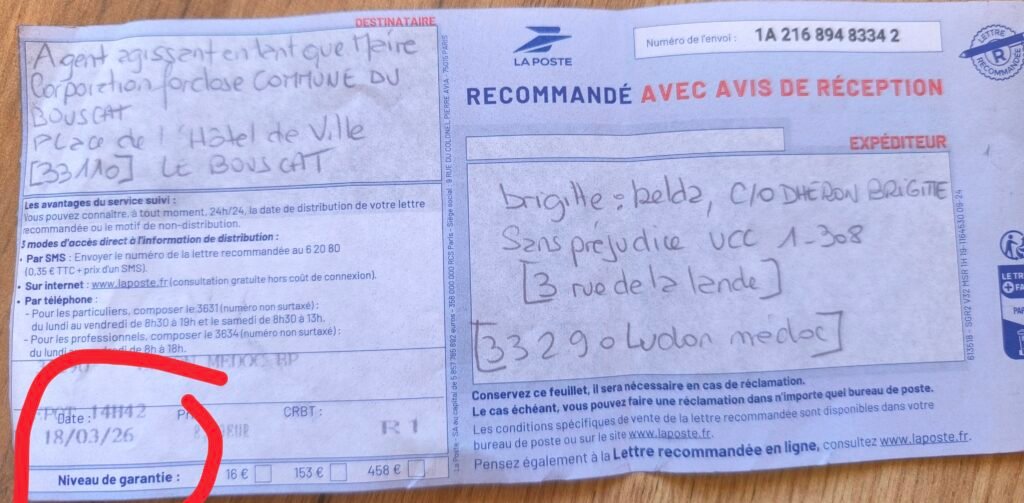 DESTINATAIRE
Agent agissant en tant que Maire
Corporation forclose COMMUNE DU
BOUSCAT
PLace de l'Hôtel de Ville
[33110] LE BOUSCAT
Les avantages du service suivi :
Vous pouvez connaître, à tout moment, 24h/24, la date de distribution de votre lettre
recommandée ou le motif de non-distribution.
3 modes d'accès direct à l'information de distribution :
• Par SMS : Envoyer le numéro de la lettre recommandée au 6 20 80
(0,35 € TTC + prix d'un SMS).
• Sur internet : www.laposte.fr (consultation gratuite hors coût de connexion).
• Par téléphone :
- Pour les particuliers, composer le 3631 (numéro non surtaxé) :
du lundi au vendredi de 8h30 à 19h et le samedi de 8h30 à 13h.
- Pour les professionnels, composer le 3634 (numéro non surtaxé) :
du lundi au vendredi de 8h à 18h.
MEDOC BP
14H42
Date :
CRBT :
18/03/26
R1
Niveau de garantie :
16 €
153 €
458 €
La Poste - SA au capital de 5 857 785 892 euros - 356 000 000 RCS Paris - Siège social : 9 RUE DU COLONEL PIERRE AVIA - 75015 PARIS
LA POSTE
Numéro de l'envoi : 1A 216 894 8334 2
LETTRE
R
RECOMMANDÉE
RECOMMANDÉ AVEC AVIS DE RÉCEPTION
EXPÉDITEUR
brigitte : belda, C/O DHERON BRIGITTE
Sans préjudice UCC 1-308
[3 rue de la lande]
[33290 Ludon médoc]
Conservez ce feuillet, il sera nécessaire en cas de réclamation.
Le cas échéant, vous pouvez faire une réclamation dans n'importe quel bureau de poste.
Les conditions spécifiques de vente de la lettre recommandée sont disponibles dans votre
bureau de poste ou sur le site www.laposte.fr.
Pensez également à la Lettre recommandée en ligne, consultez www.laposte.fr.
LE TRI